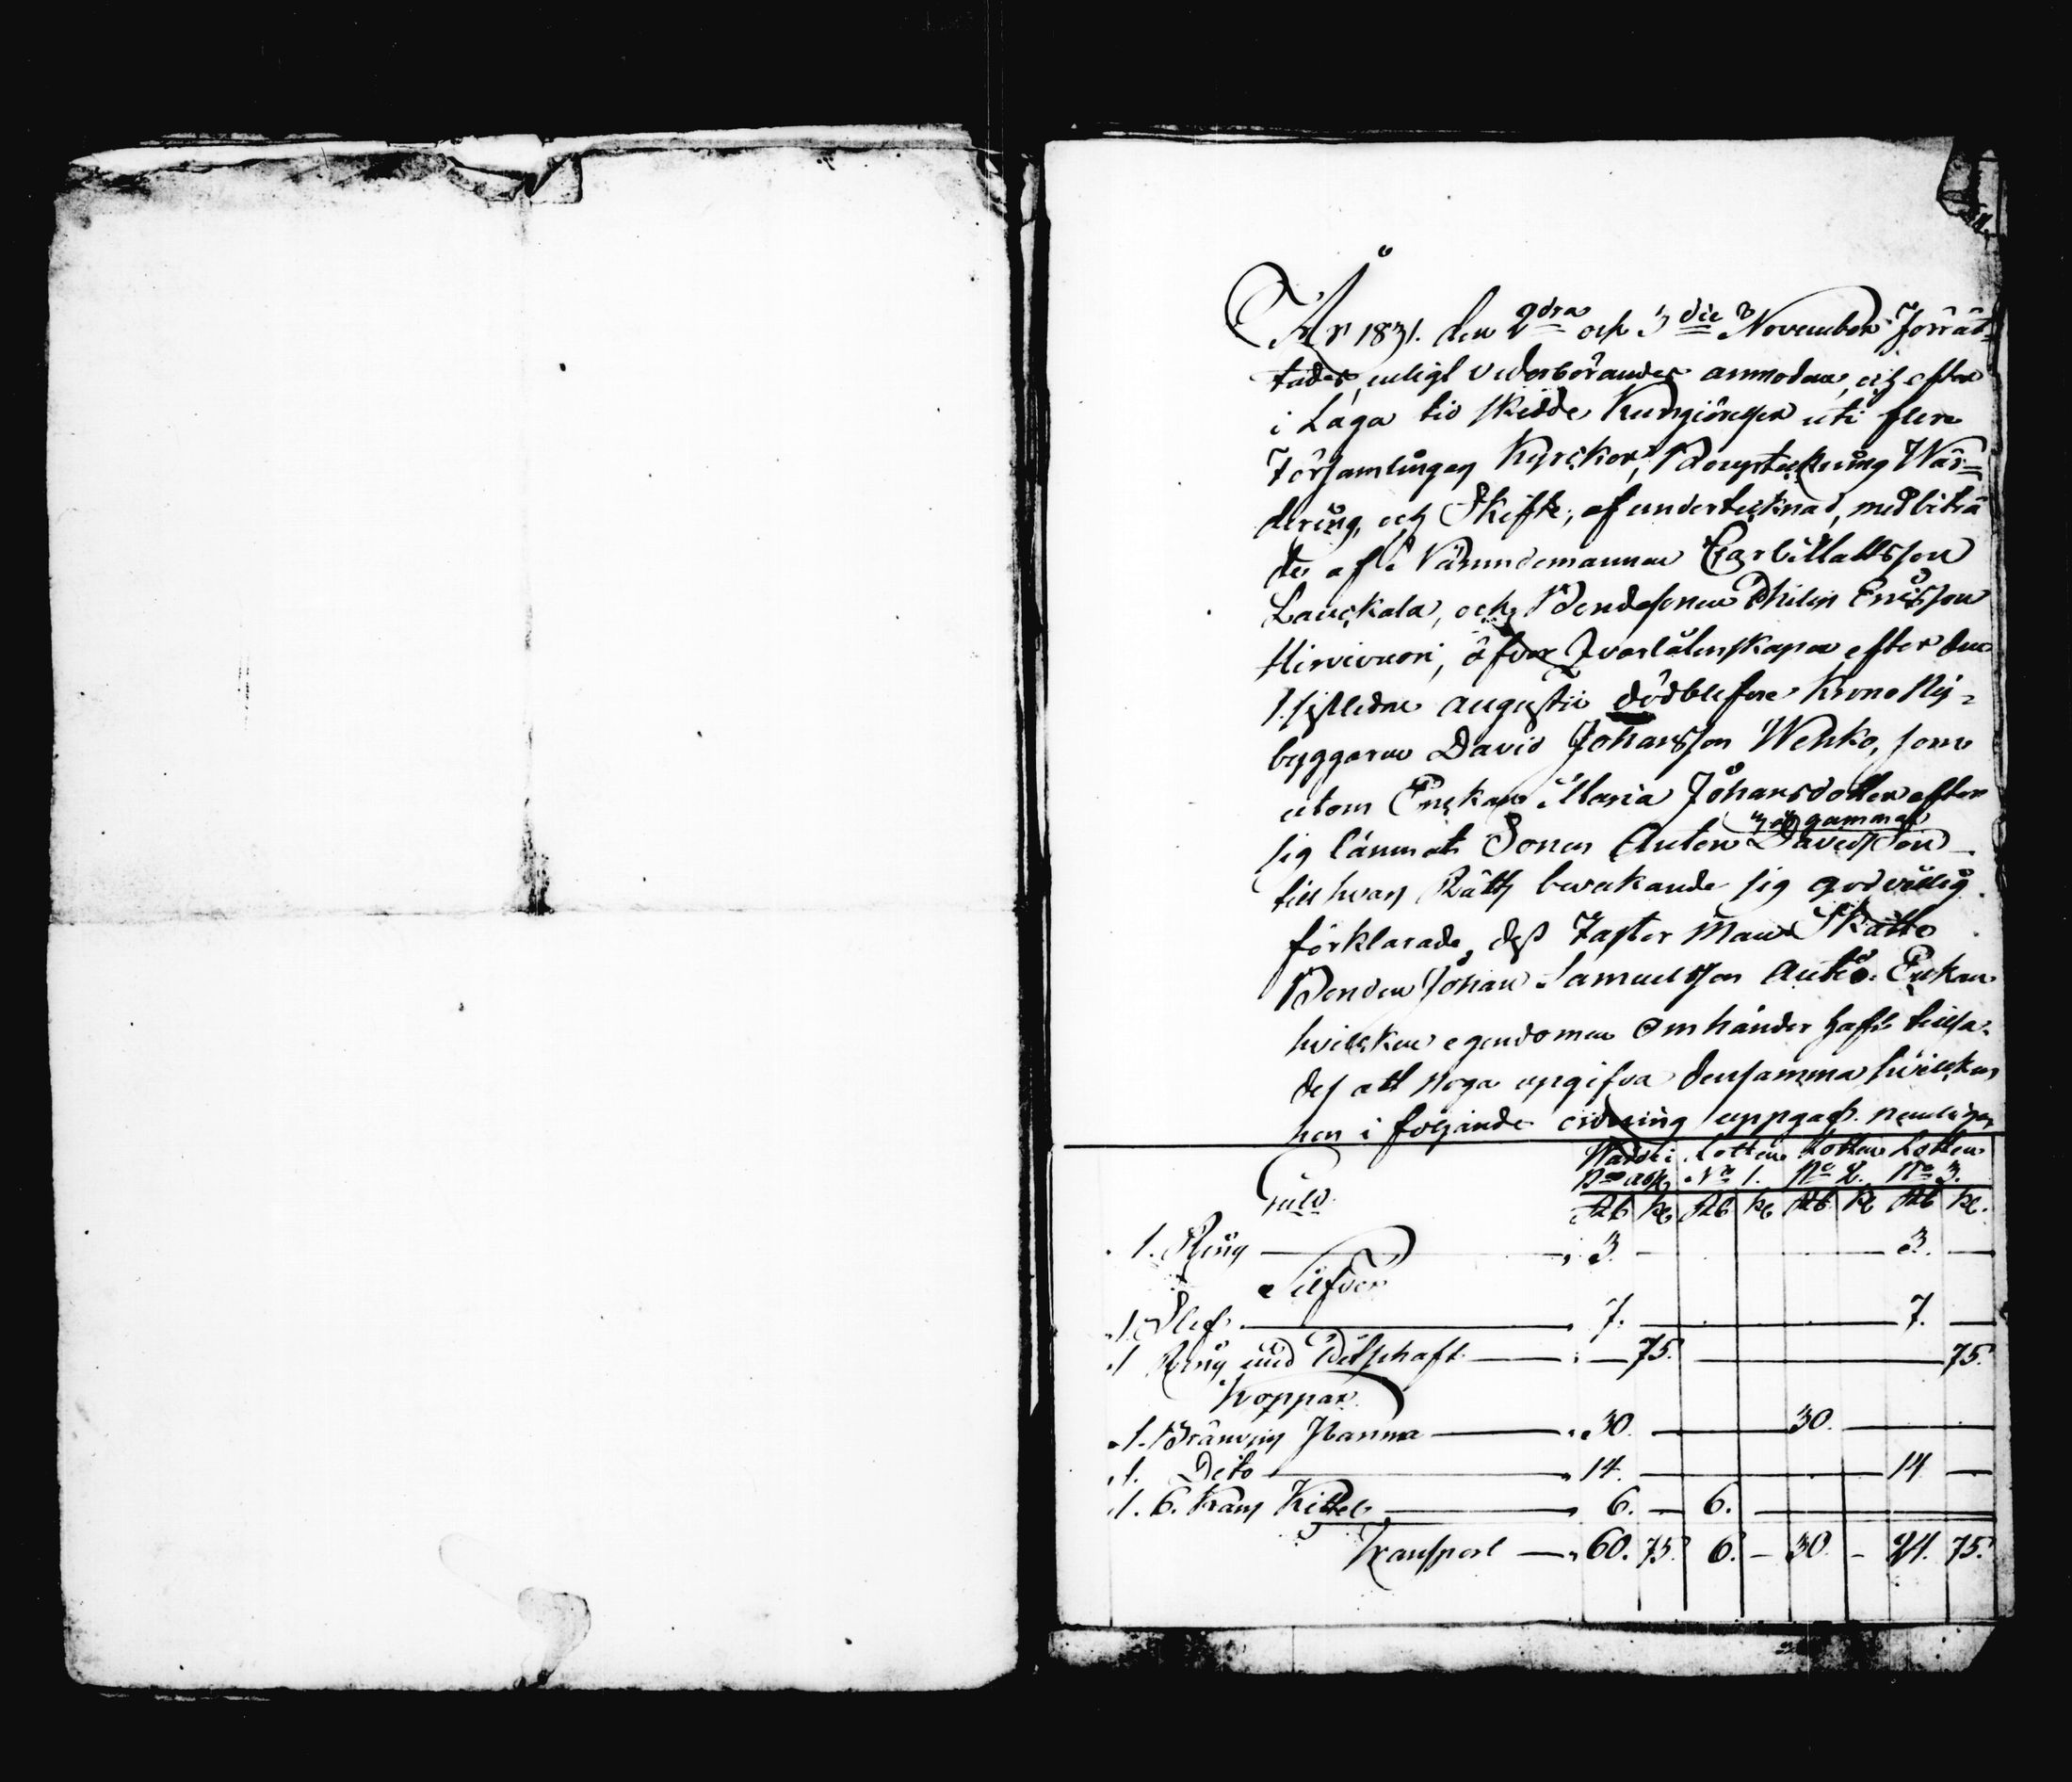 År 1831. den 2dra och 3die November Förrät-
tades, enligt vederbörandes anmodan, och efter
i Laga tid skedde Kungiörelser uti flere
Församlingars Kyrckor, Boupteckning Wär-
dering, och Skifte, af undertecknad, med biträ
de af Nämndemannen Carl Mattsson
Lauckala, och Bondesonen Philip Ericsson
Hirvivuori, öfver Qvarlåtenskapen efter den
1. sistledne augustii dödblefne Krono Ny-
byggaren David Johansson Wehko, som
utom Enckan Maria Johansdotter efter
3 år gammal
sig lämnat Sonen Anton Davidsson
till hvars Rätts bevakande sig godvillig
förklarade, dess Faster Man Skatte
Bonden Johan Samuelsson Autio. Enkan
hvilcken egendomen om händer haft tillsa-
des att noga upgifva densamma hvilcken
hon i följande ordning uppgaf. nemligen
Guld. Lotten N° 1. Lotten N° 2. Lotten N° 3.
Rub K Rub K Rub K Rub K.
1. Ring 3. — 3. —
Silfver
1. Slef 7. — 7. —
1 Ring med — 75. 75.
Koppar
1. Bränvins Panna 30. — 30. —
1. Dito 14. — 14 —
1. 6. Kans Kittel 6. — 6. —
Transport 60. 75. 6. — 30. — 24. 75.